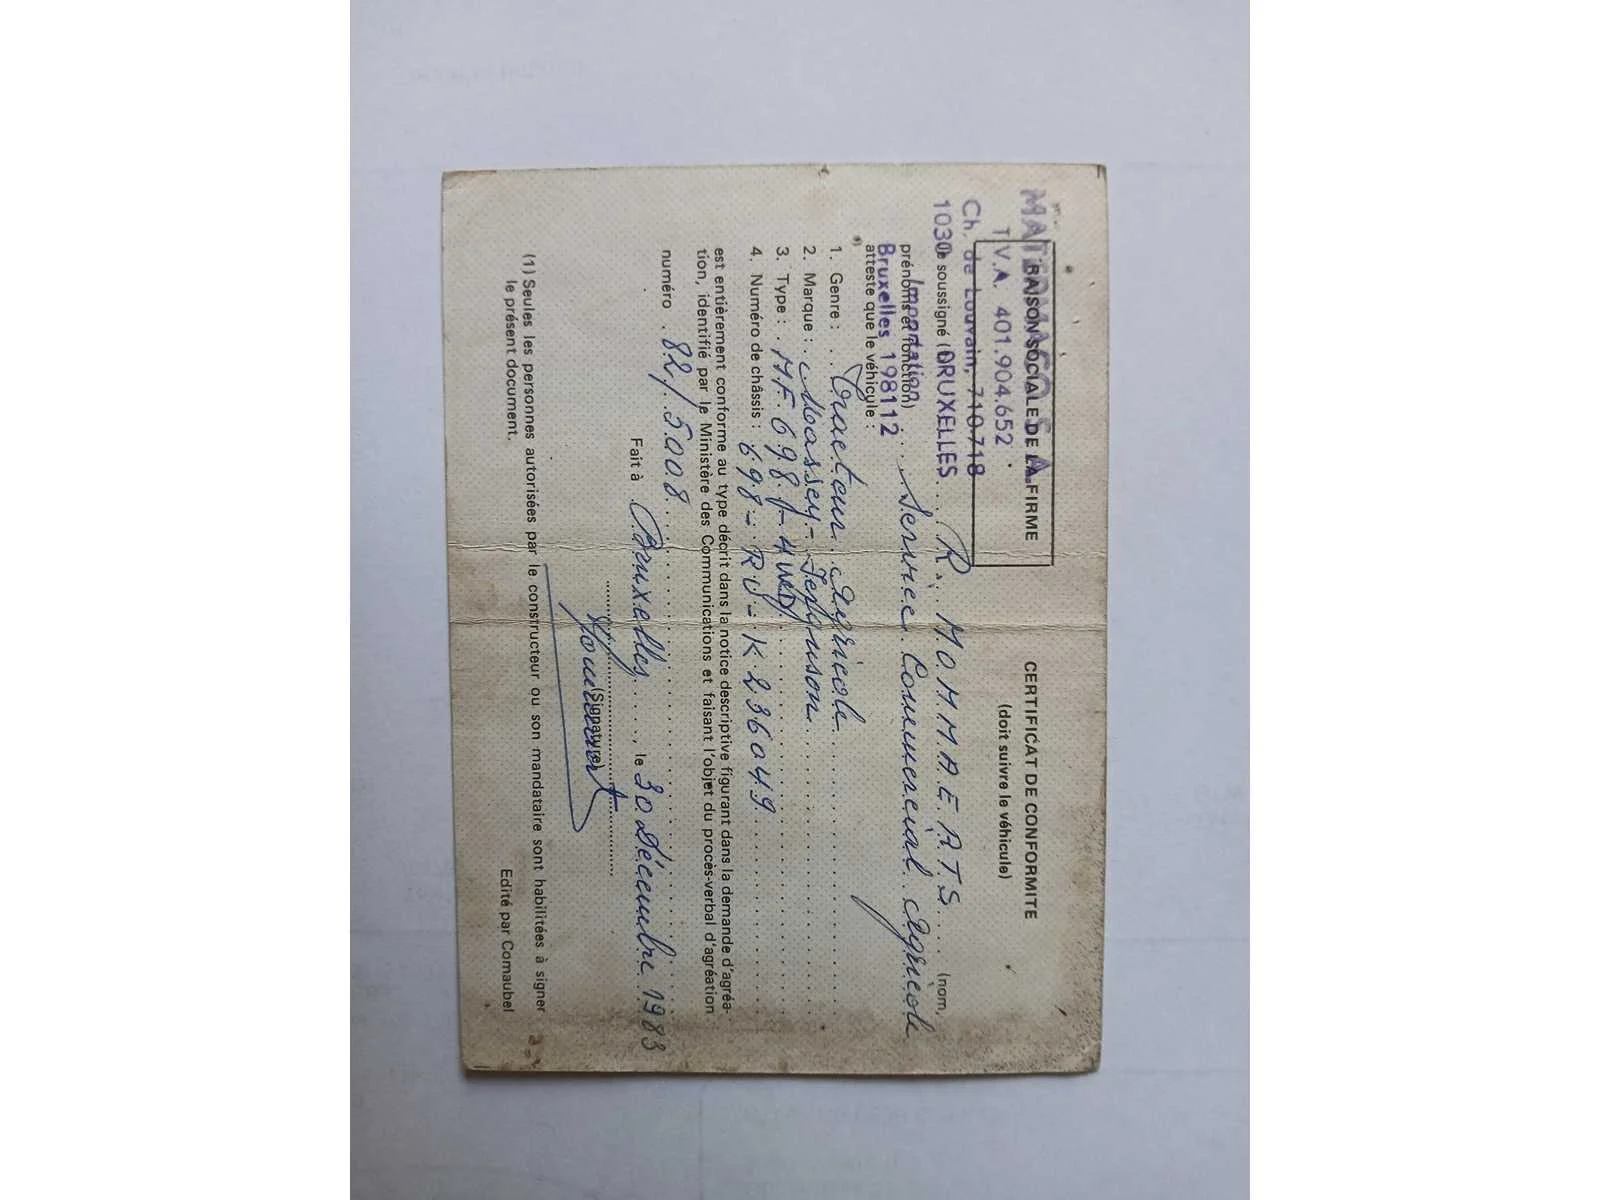 RAISON SOCIALE DE LA FIRME
MATERMACO S.A.
T.V.A. 401.904.652
Ch. de Louvain, 710-718
1030 BRUXELLES
Importation
Bruxelles 198112
CERTIFICAT DE CONFORMITE
(doit suivre le véhicule)
Je soussigné (1) R. MOMMAEATS (nom,
prénoms et fonction) Service Commercial Agricole
atteste que le véhicule :
1. Genre : Tracteur Agricole
2. Marque : Massey-Ferguson
3. Type : MF 698 - 4WD
4. Numéro de châssis : 698 - RU - K 236049
est entièrement conforme au type décrit dans la notice descriptive figurant dans la demande d'agréa-
tion, identifié par le Ministère des Communications et faisant l'objet du procès-verbal d'agréation
numéro 82/5008
Fait à Bruxelles, le 30 Décembre 1983
(Signature)
(1) Seules les personnes autorisées par le constructeur ou son mandataire sont habilitées à signer
le présent document.
Edité par Comaubel